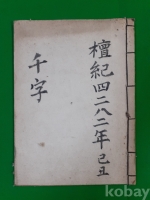 檀紀四二八二年 己丑
千字
kobay